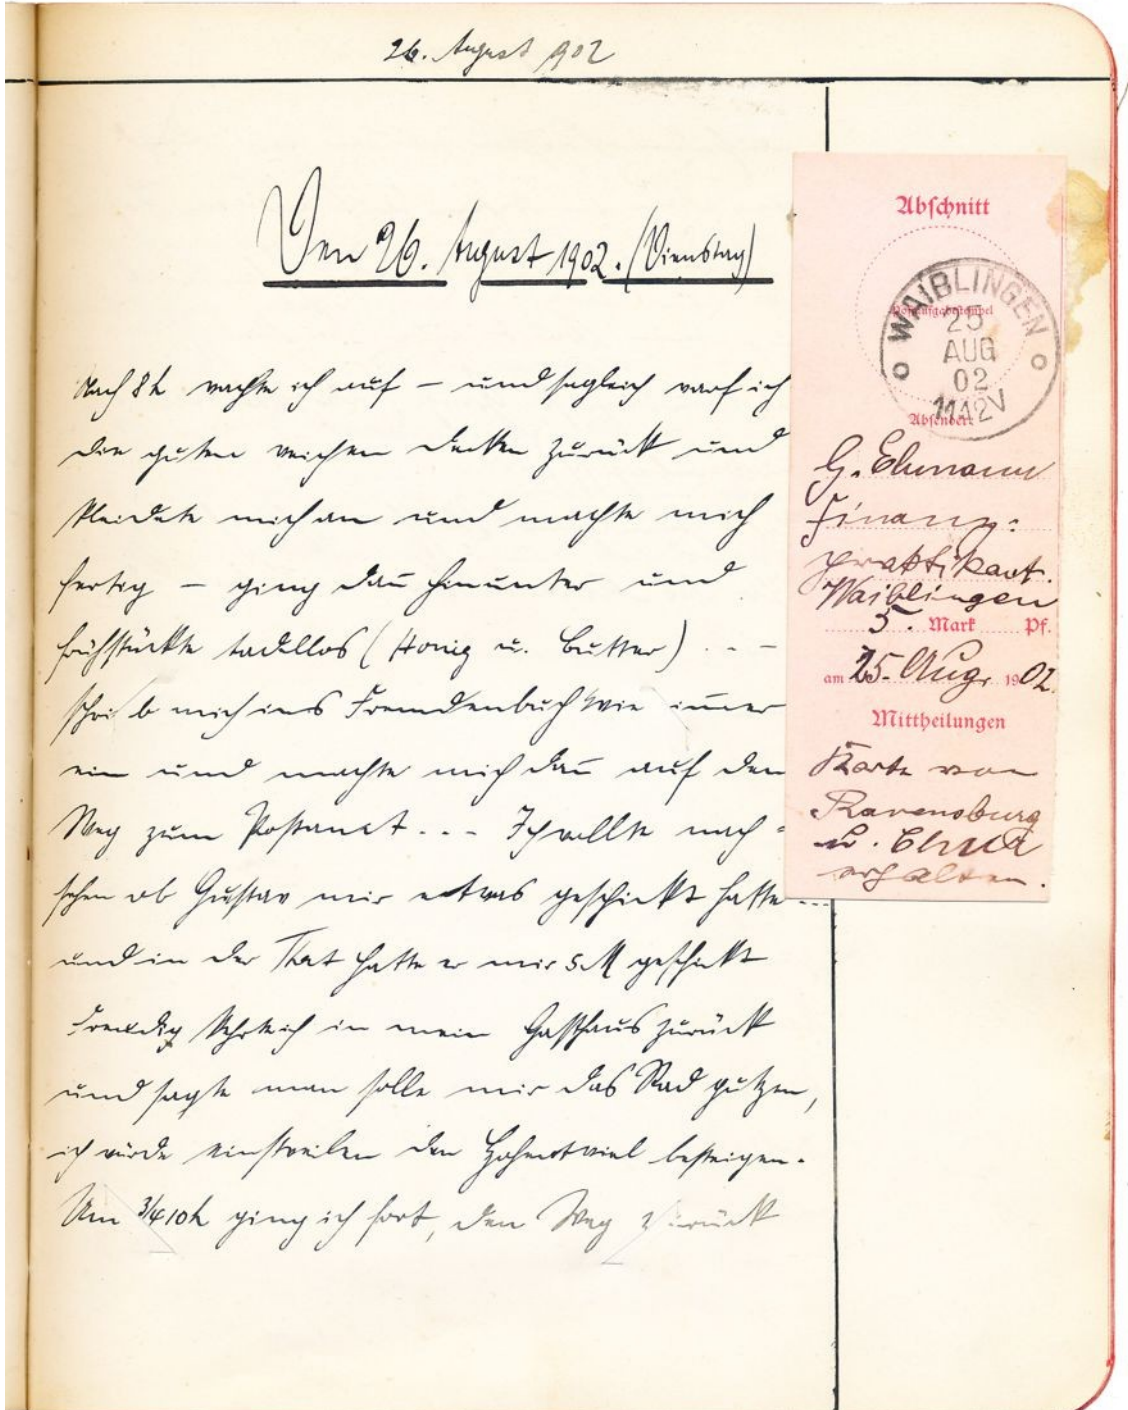 26. August 902
Den 26. August 1902. (Dienstag)
Nach 8h wachte ich auf – und sogleich warf ich
die guten weichen Decken zurück und
kleidete mich an und machte mich
fertig – ging dan̄ hinunter und
frühstückte tadellos (Honig u. Butter) . - –
schrieb mich ins Fremdenbuch wie im̄er
ein und machte mich dan̄ auf den
Weg zum Postamt. . . – Ich wollte nach-
sehen ob Gustav mir etwas geschickt hatte ...
und in der That hatte er mir 5 M geschickt
Freudig kehrte ich in mein Gasthaus zurück
und sagte man solle mir das Rad putzen,
ich würde einstweilen den Hohentwiel besteigen.
Um 3/4 10h ging ich fort, den Weg zurück
Abschnitt
Postaufgabestempel
WAIBLINGEN
25
AUG
02
11-12V
Absender:
G. Ehmann
Finanz:
praktikant.
Waiblingen
5. Mark Pf.
am 25. Aug. 1902.
Mittheilungen
Karte von
Ravensburg
u. Chur
erhalten.